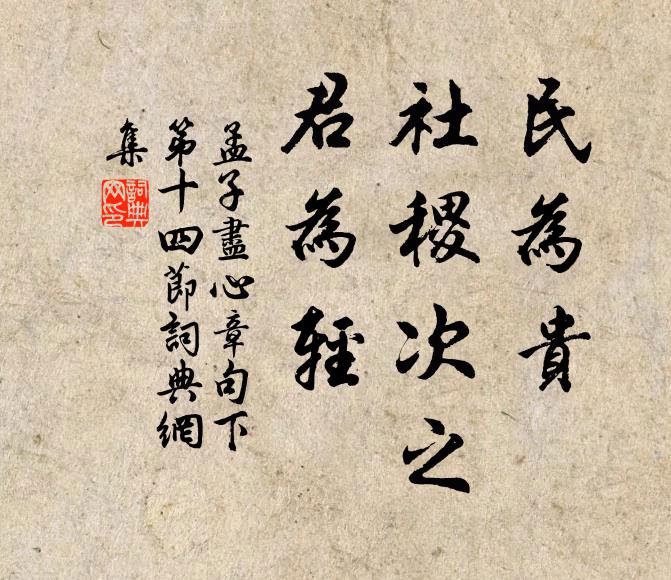 民為貴
社稷次之
君為輕
孟子盡心章句下
第十四節詞典網
集
詞典
网印